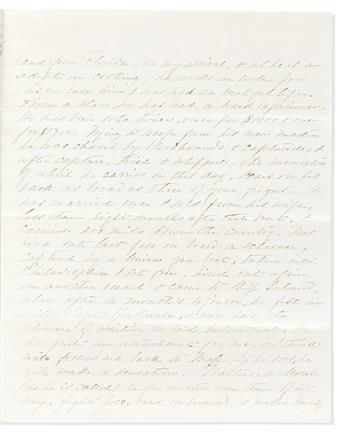 hand from Florida, on my arrival, & as he is an
adept in cooking, he
as we call him, has had an
Born a slave, he has had a hard experience.
He has been sold twice, once for $1000 & once
for $1700. Trying to escape from his new master
he was chased by bloodhounds & captured; &
after capture, tried & whipped, the mementoes
of which he carries to this day, scars on his
back as broad as three of your fingers. He
was married once & sold from his wife,
less than eight months after that event, &
carried 200 miles down the country. Was
hired out last fall on board a schooner,
captured by a Union gun boat, taken into
Philadelphia & set free, hired out again
on another vessel & came to Ship Island,
where after a month's sojourn, he fell in
with & now has the
pleasure of waiting on said individual. He
has quite an attachment for me, & I think
will follow me back to Mass. If he does, he
will make a sensation.
(as he is called) keeps on the even tenor of his
way, & makes himself